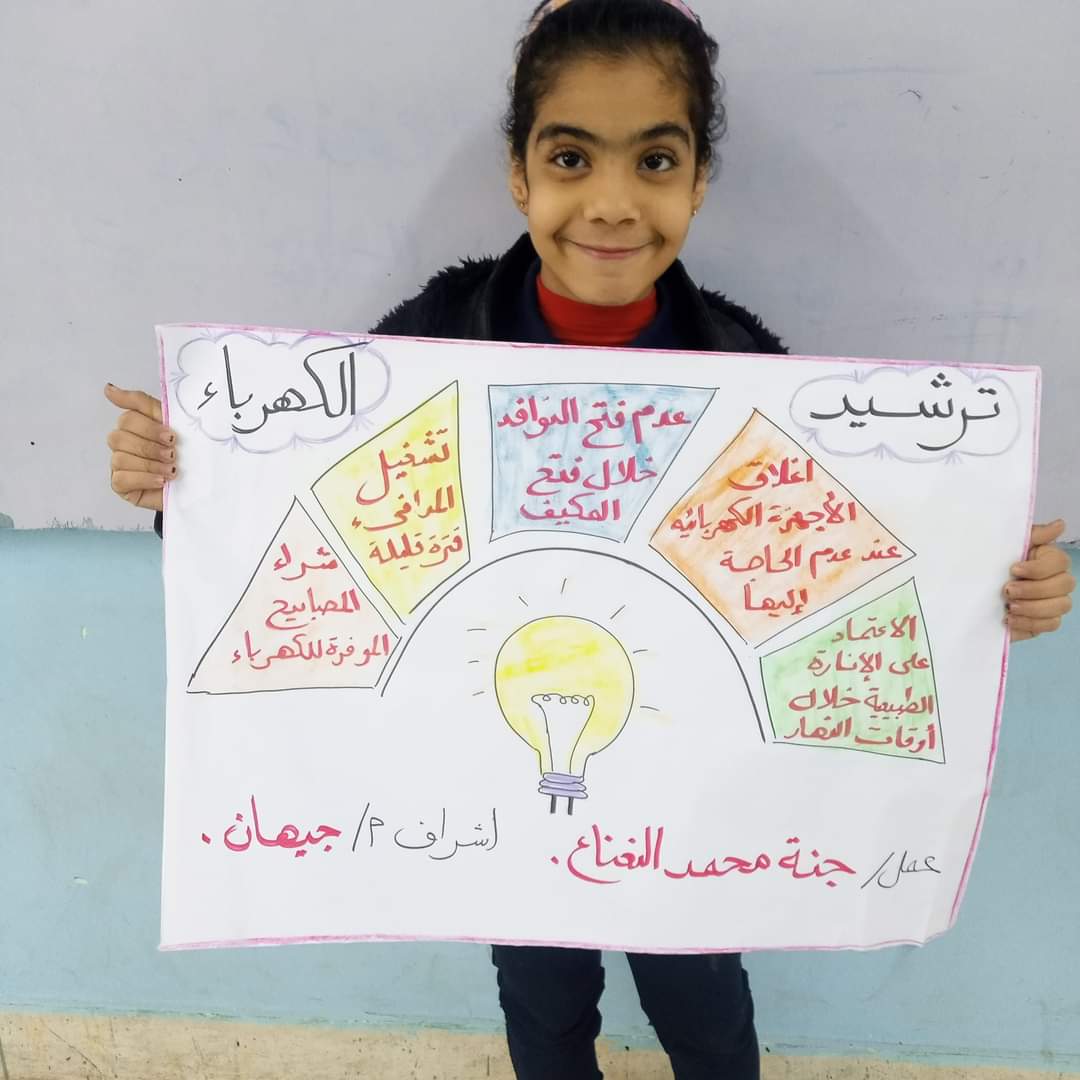 ترشيد
الكهرباء
الاعتماد
على الإنارة
الطبيعية خلال
أوقات النهار
اغلاق
الأجهزة الكهربائيه
عند عدم الحاجة
إليها
عدم فتح النوافذ
خلال فتح
المكيف
تشغيل
المدافىء
فترة قليلة
شراء
المصابيح
الموفرة للكهرباء
عمل/ جنة محمد النعناع.
اشراف م/ جيهان.